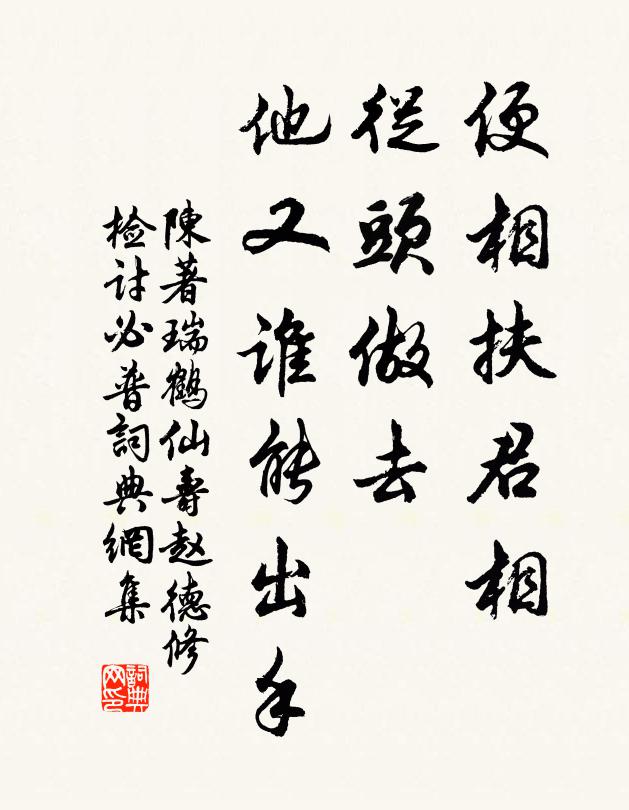 便相扶君相
從頭做去
他又誰能出手
陳著瑞鶴仙壽赵德修
检討必普詞典網集
詞典网印